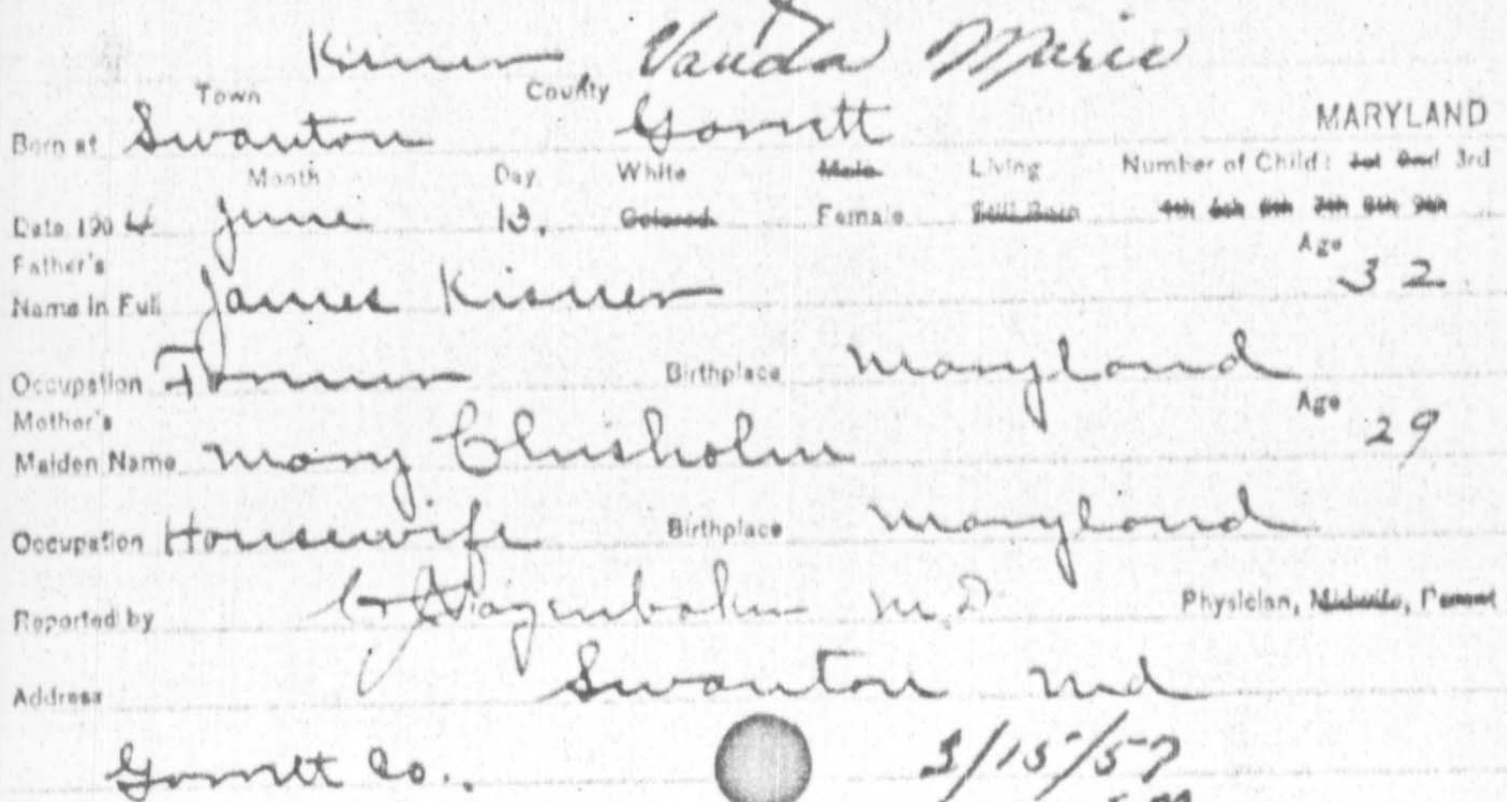 Kisner Vanda Marie
Town County
Born at Swanton Garrett MARYLAND
Month Day White Male Living Number of Child: 1st 2nd 3rd
Date 1904 June 13. Colored Female Still Born 4th 5th 6th 7th 8th 9th
Father's Age
Name in Full James Kisner 32
Occupation Farmer Birthplace Maryland
Mother's Age
Maiden Name Mary Chisholm 29
Occupation Housewife Birthplace Maryland
Reported by M.D Physician, Midwife, Parent
Address Swanton Md
Garrett Co. 3/15/57